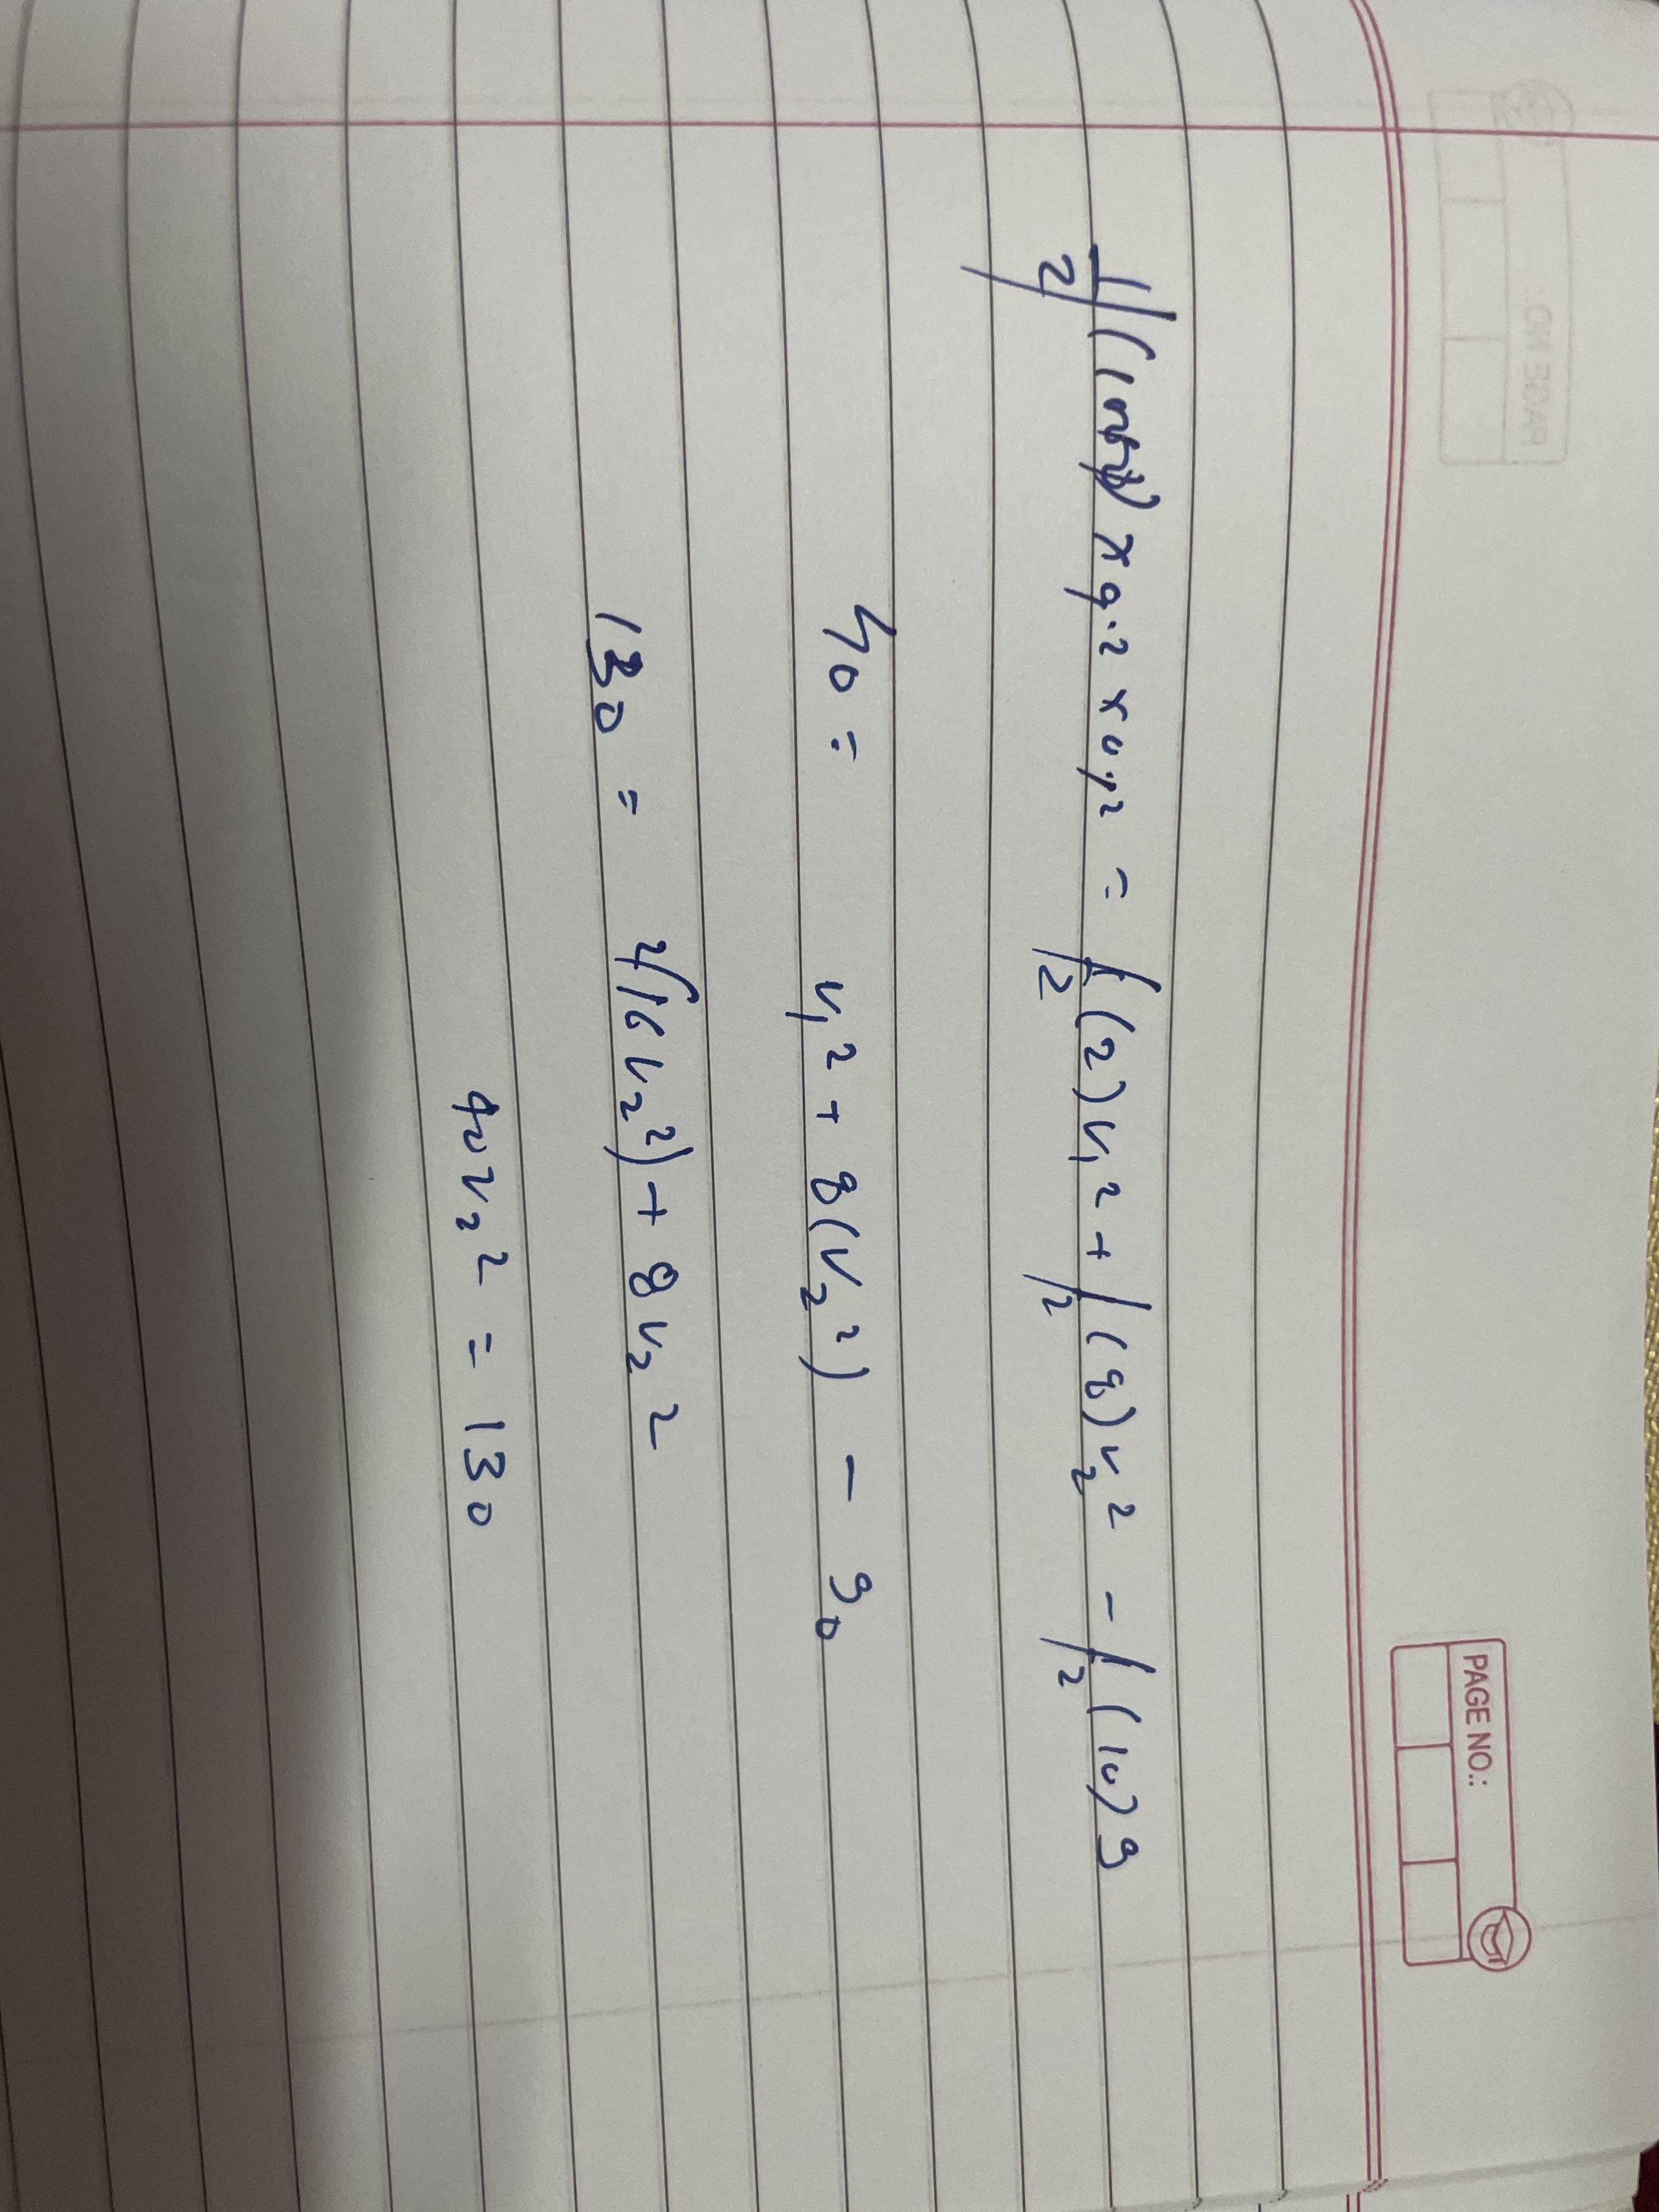 PAGE NO.:
1/2 (1000) x 0.2 x 0.2 = 1/2 (2) v₁² + 1/2 (8) v₂² - 1/2 (10) 9
40 = v₁² + 8(v₂²) - 90
130 = 2(16v₂²) + 8v₂²
40v₂² = 130